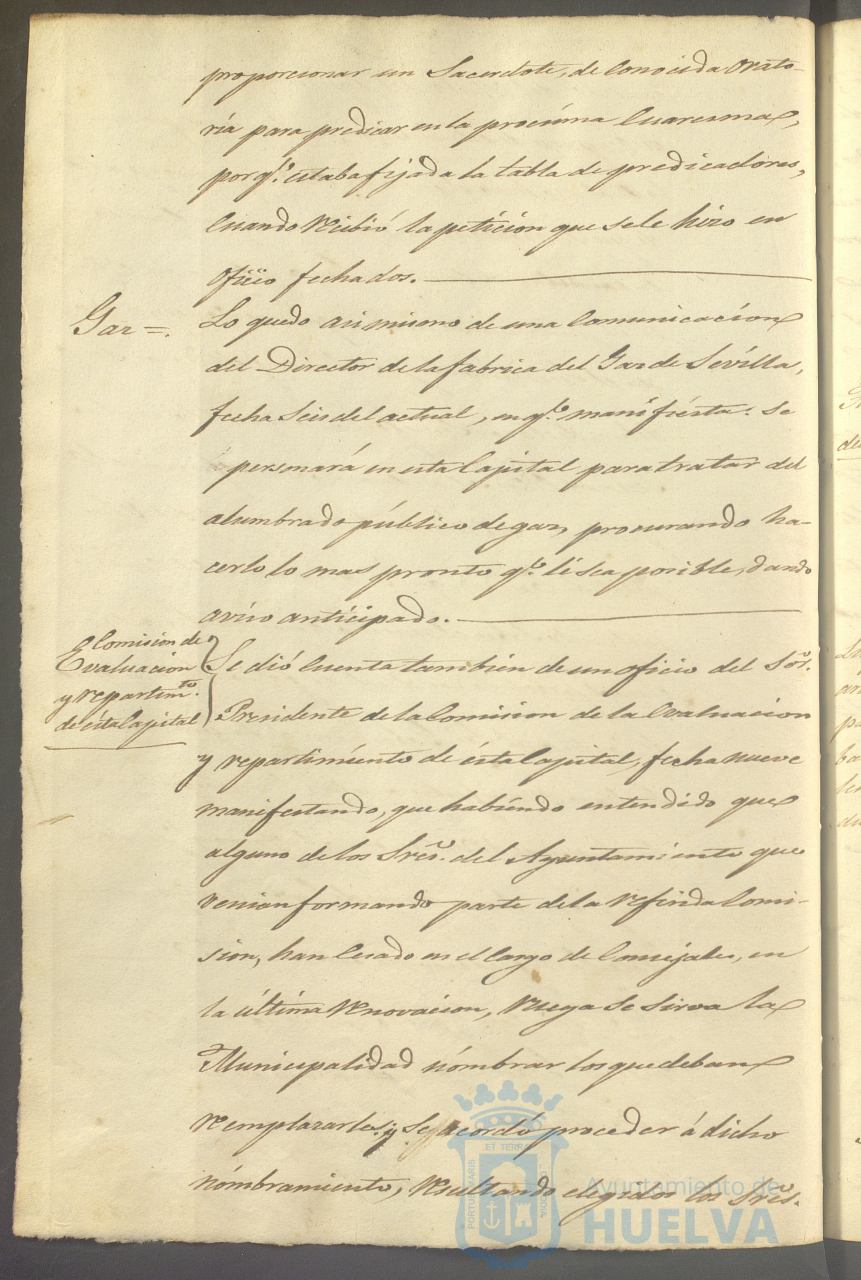 proporcionar un Sacerdote, de conocida Orato-
ria para predicar en la procsima Cuaresma,
por qe. estaba fijada la tabla de predicadores,
cuando recibió la peticion que se le hizo en
oficio fecha dos.
Gaz =.
Lo quedo asi mismo de una Comunicacion
del Director de la fabrica del Gaz de Sevilla,
fecha seis del actual, en qe. manifiesta: se
personará en esta Capital para tratar del
alumbrado público de gaz, procurando ha-
cerlo lo mas pronto qe. le sea posible, dando
aviso anticipado.
Comision de
Evaluacion
y repartimto.
de esta Capital
Se dió cuenta tambien de un oficio del Sor.
Presidente de la Comision de la Evaluacion
y repartimiento de ésta Capital, fecha nueve
manifestando, que habiendo entendido que
alguno de los Sres. del Ayuntamiento que
venian formando parte de la referida Comi-
sion, han cesado en el cargo de Concejales, en
la última renovacion, ruega se sirva la
Municipalidad nombrar los que deban
remplazarles; y se acordó proceder á dicho
nombramiento, resultando elegidos los Sres.
PORTUS MARIS
ET TERRAE
CUSTODIA
Ayuntamiento de
HUELVA